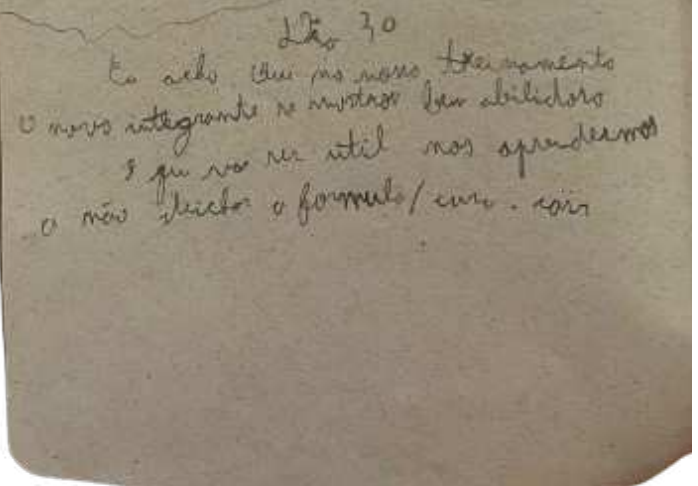 Dia 30
Eu acho que no nosso treinamento
o novo integrante se mostrou ben abilidoro
e que vai ser util nos aprendermos
a não deichar a formula/cura . cair